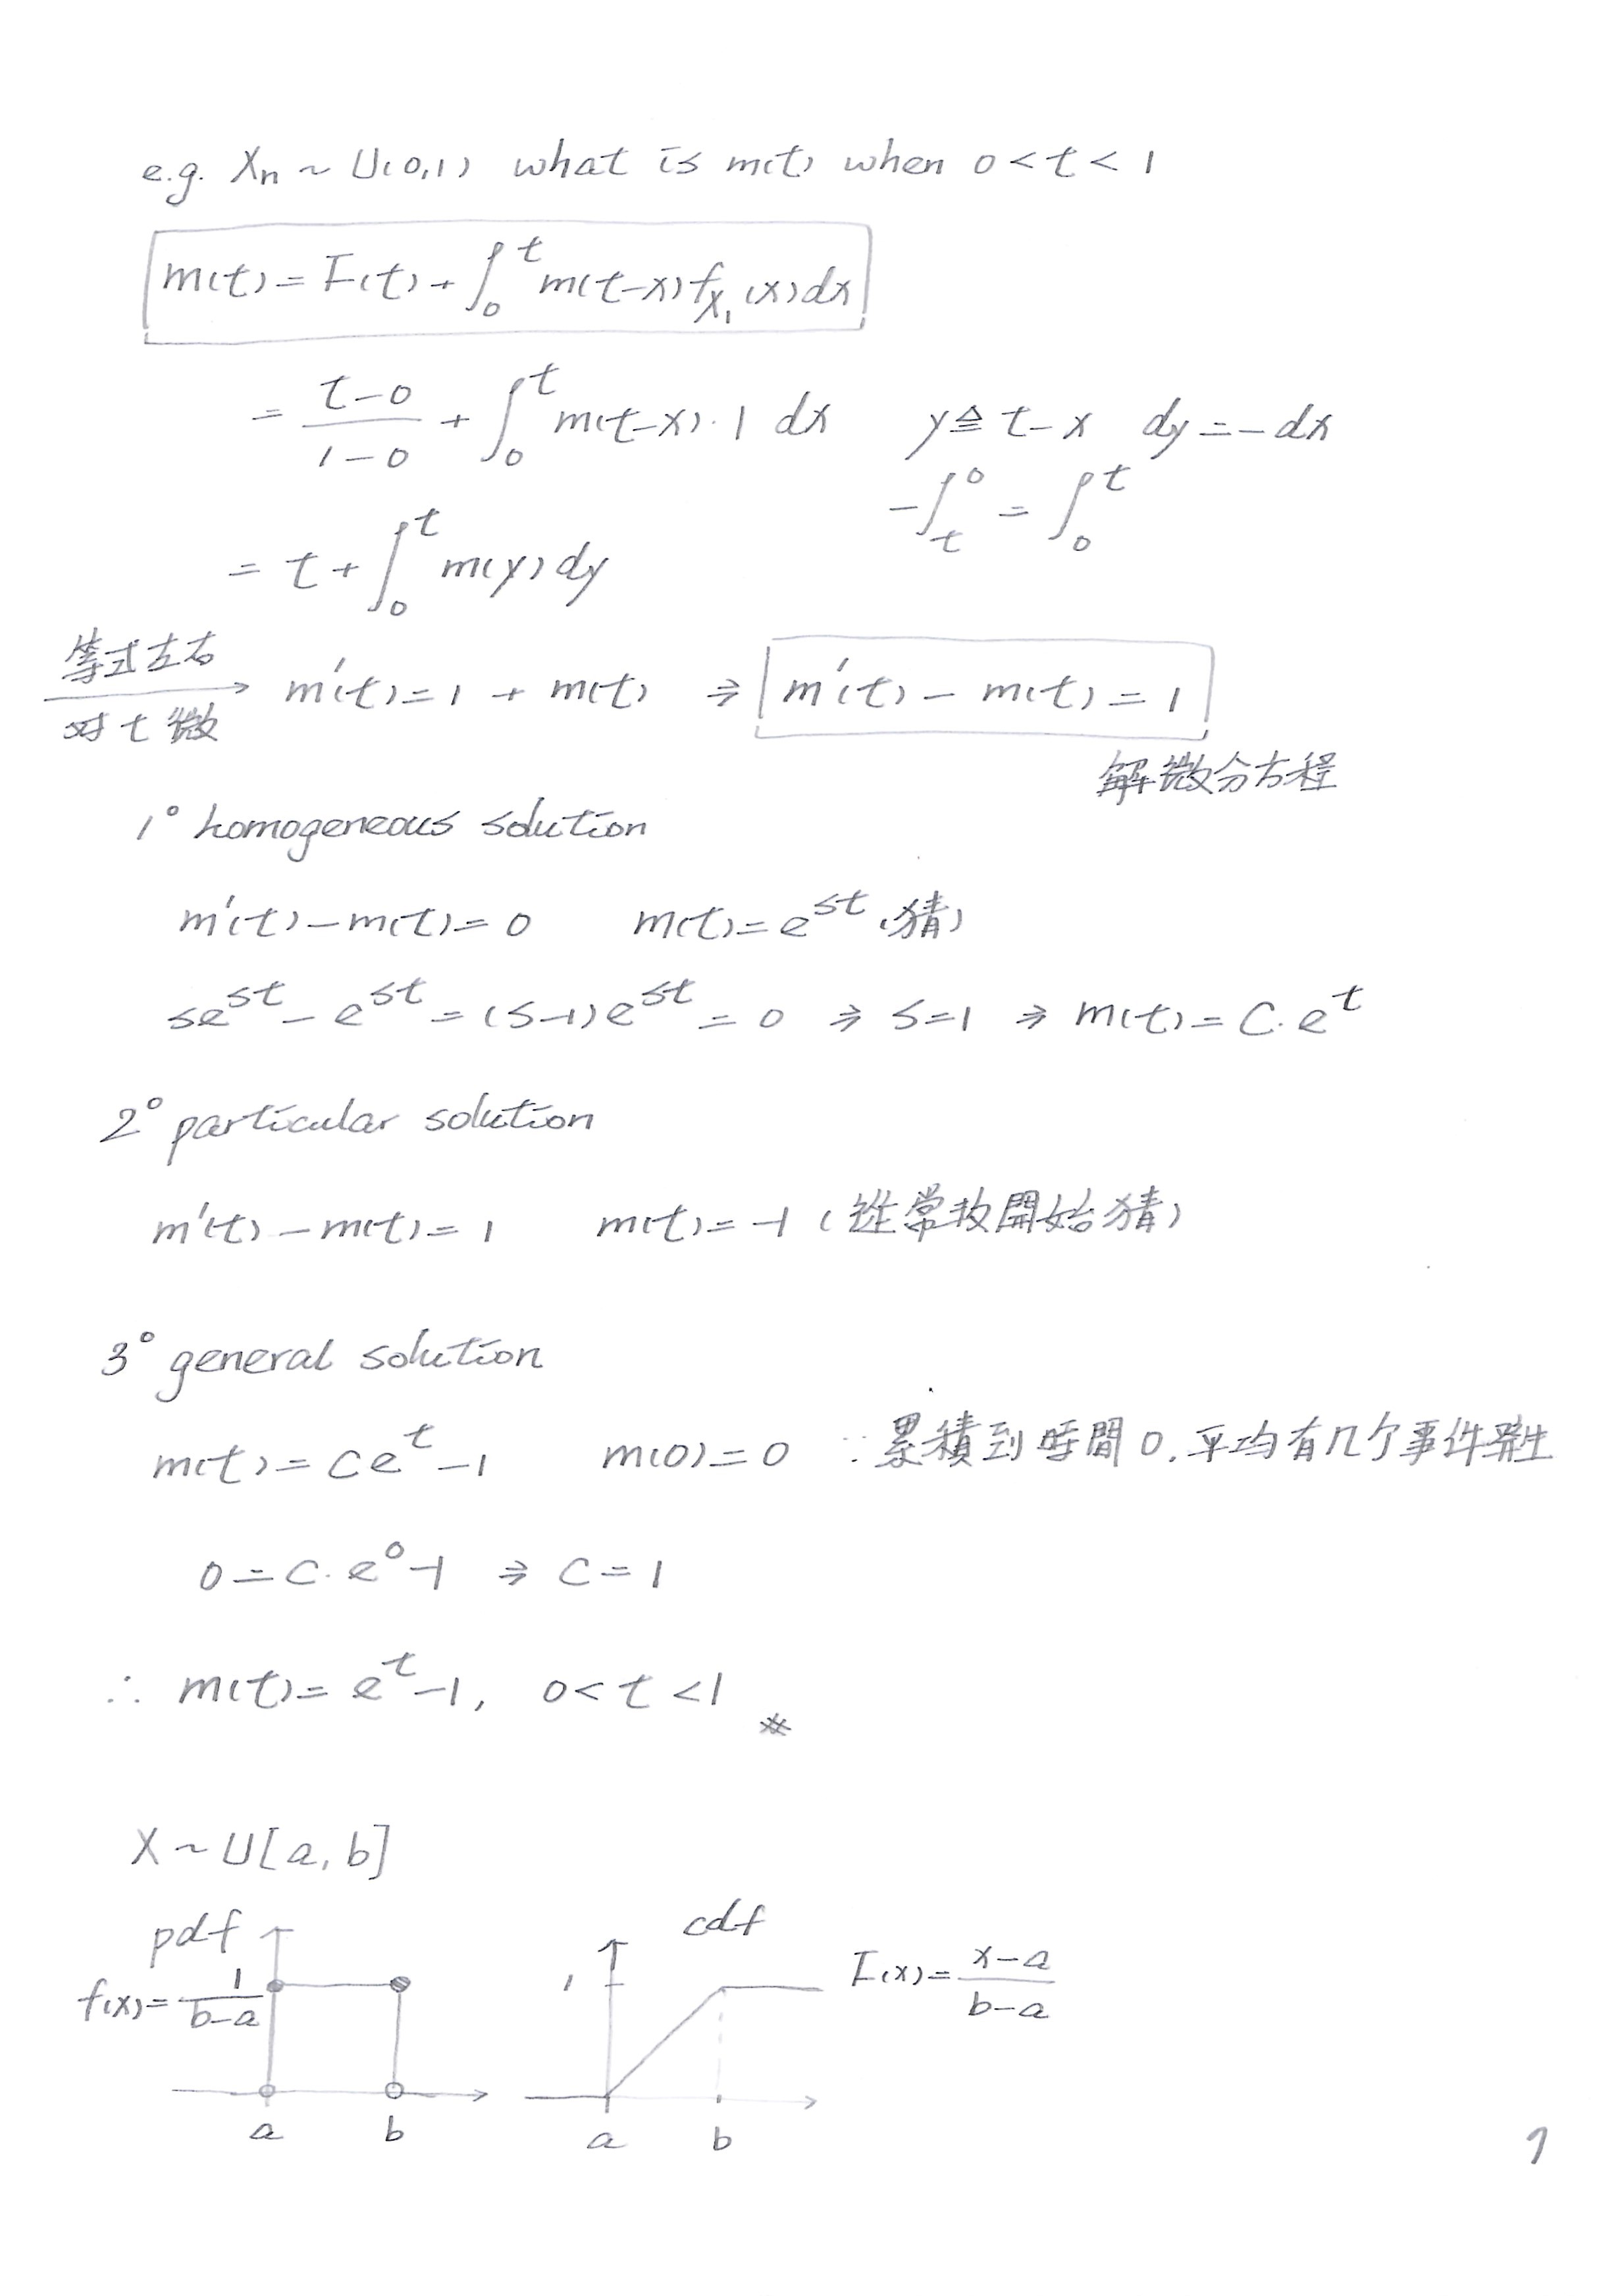 e.g. Xn ~ U(0,1) what is m(t) when 0 < t < 1
m(t) = F(t) + ∫₀ᵗ m(t-x) f_X₁(x) dx
= (t-0)/(1-0) + ∫₀ᵗ m(t-x)·1 dx y ≜ t-x dy = -dx
-∫ₜ⁰ = ∫₀ᵗ
= t + ∫₀ᵗ m(y) dy
等式左右
对 t 微
m'(t) = 1 + m(t) ⇒ m'(t) - m(t) = 1
解微分方程
1° homogeneous solution
m'(t) - m(t) = 0 m(t) = e^st (猜)
se^st - e^st = (s-1)e^st = 0 ⇒ s=1 ⇒ m(t) = C·e^t
2° particular solution
m'(t) - m(t) = 1 m(t) = -1 (從常数開始猜)
3° general solution
m(t) = Ce^t - 1 m(0) = 0 ∵累積到時間0, 平均有几个事件發生
0 = C·e^0 - 1 ⇒ C = 1
∴ m(t) = e^t - 1, 0 < t < 1 #
X ~ U[a, b]
pdf cdf
f(x) = 1/(b-a) 1 F(x) = (x-a)/(b-a)
a b a b
7